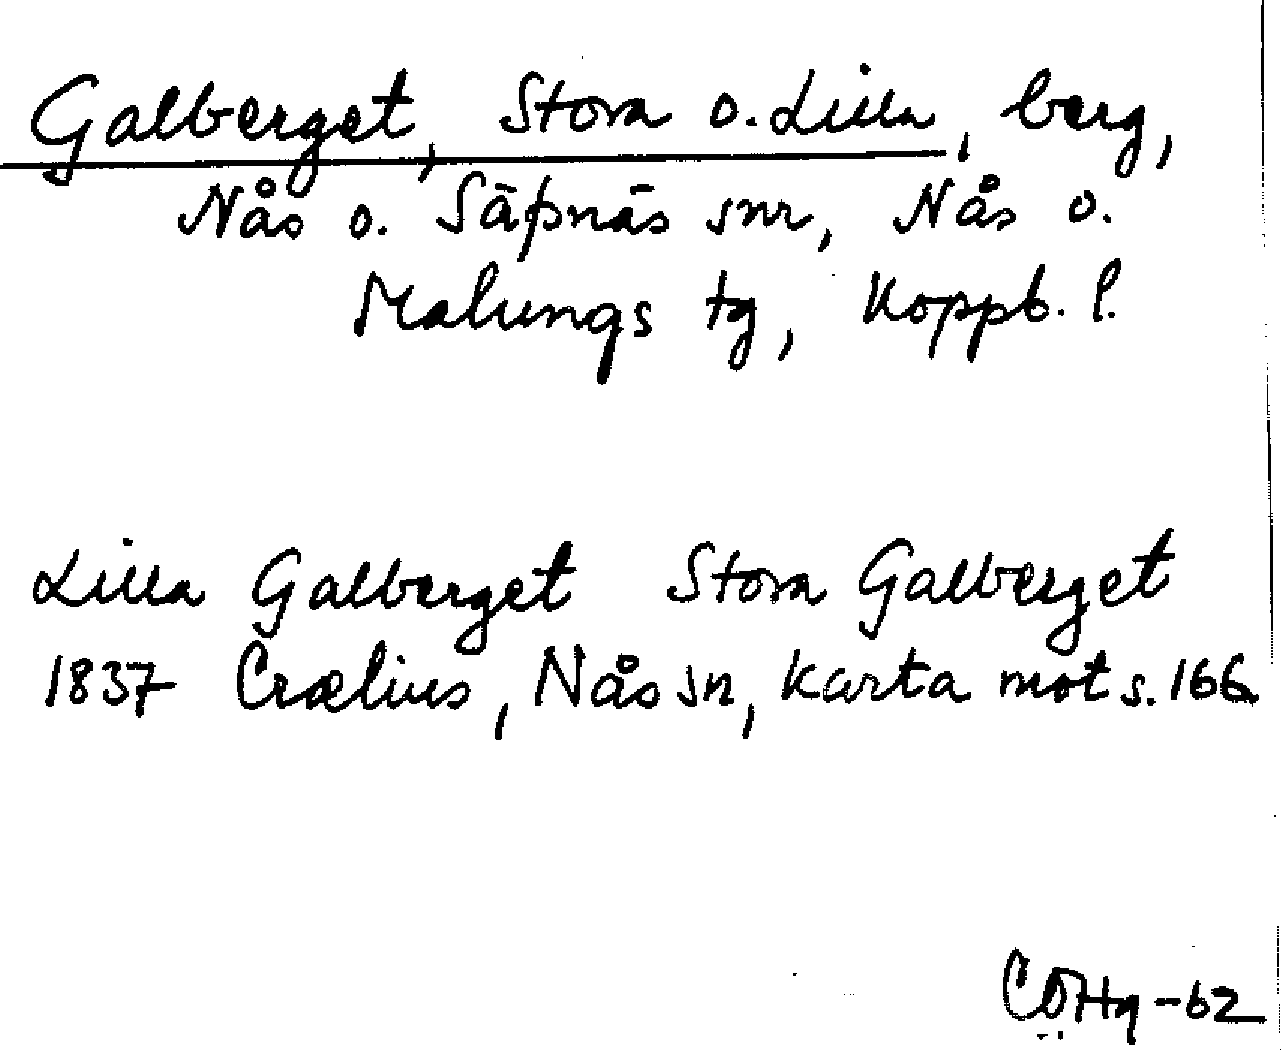 Galberget, Stora o. Lilla, berg,
Nås o. Säfsnäs snr, Nås o.
Malungs tg, Koppb. l.
Lilla Galberget Stora Galberget
1837 Crælius, Nås sn, karta mot s. 166
CÖHg -62